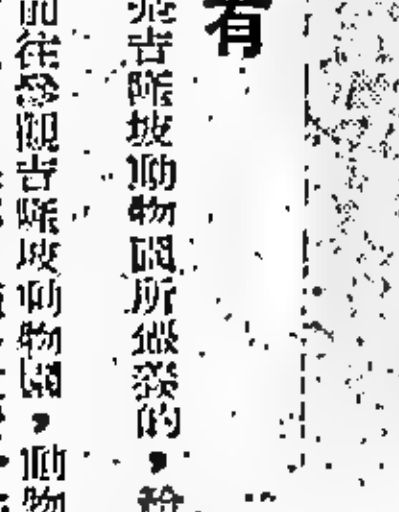 有
吉隆坡動物園所繼發的，
往參觀吉隆坡動物園，動物